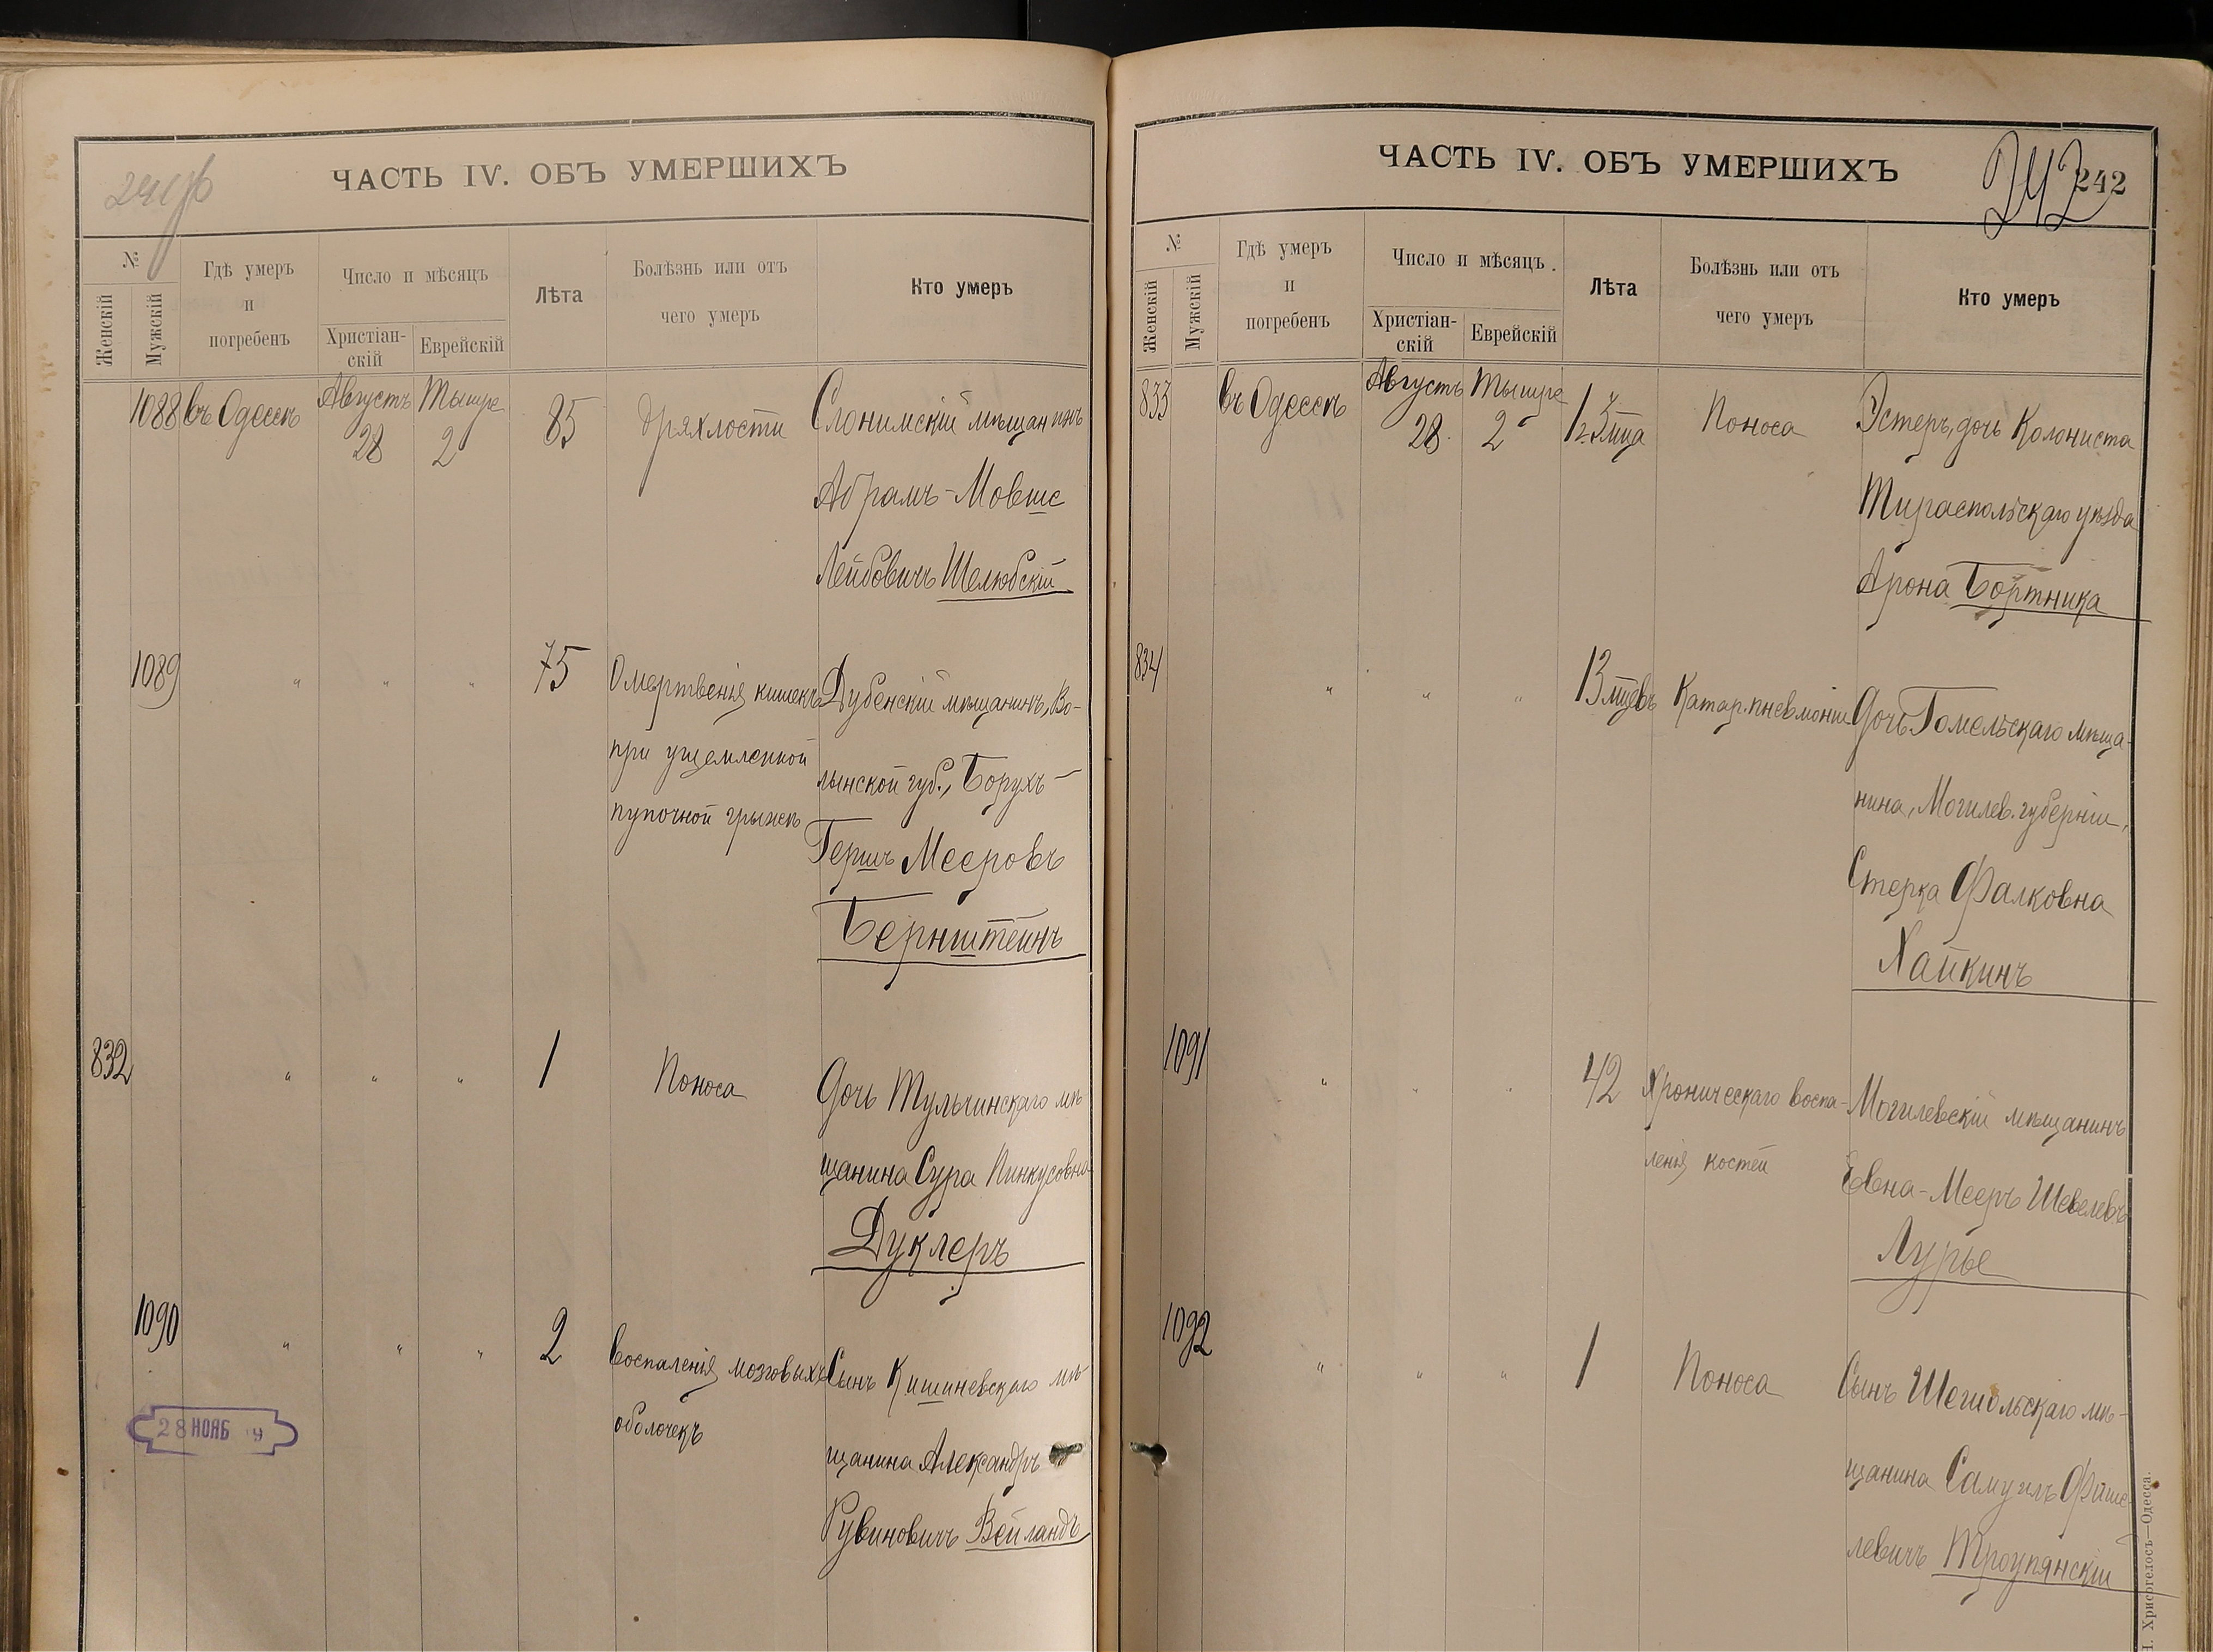 ЧАСТЬ IV. ОБЪ УМЕРШИХЪ
№
Женскій
Мужскій
Гдѣ умеръ
и
погребенъ
Число и мѣсяцъ
Христіан-
скій
Еврейскій
Лѣта
Болѣзнь или отъ
чего умеръ
Кто умеръ
1088 въ Одессѣ Августъ 28 Тышре 2 85 дряхлости Слонимскій мѣщанинъ
Абрамъ-Мовше
Лейбовичъ Шелюбскій
1089 " " " 75 Омертвенія кишекъ Дубенскій мѣщанинъ, Во-
при ущемленной лынской губ., Борухъ-
пупочной грыжѣ Гершъ Мееровъ
Бернштейнъ
832 " " " 1 Поноса Дочь Тульчинскаго мѣ
щанина Сура Пинкусовна
Дуклеръ
1090 " " " 2 Воспаленія мозговыхъ Сынъ Кишиневскаго мѣ
оболочекъ щанина Александръ
Рувиновичъ Вейландъ
28 НОЯБ
ЧАСТЬ IV. ОБЪ УМЕРШИХЪ
242 242
№
Женскій
Мужскій
Гдѣ умеръ
и
погребенъ
Число и мѣсяцъ.
Христіан-
скій
Еврейскій
Лѣта
Болѣзнь или отъ
чего умеръ
Кто умеръ
833 въ Одессѣ Августъ 28. Тышре 2 Поноса Эстеръ, дочь Колониста
Тираспольскаго уѣзда
Арона Бортника
834 " " " 13 мцевъ Катар. пневмоніи Дочь Гомельскаго мѣща-
нина, Могилев. губерніи,
Стерка Фалковна
Хайкинъ
1091 " " " 42 Хроническаго воспа- Могилевскій мѣщанинъ
ленія костей Евна-Мееръ Шевелевъ
Лурье
1092 " " " 1 Поноса Сынъ мѣ-
щанина Самуилъ Фише-
левичъ Троупянскій
Н. Хрисогелосъ—Одесса.